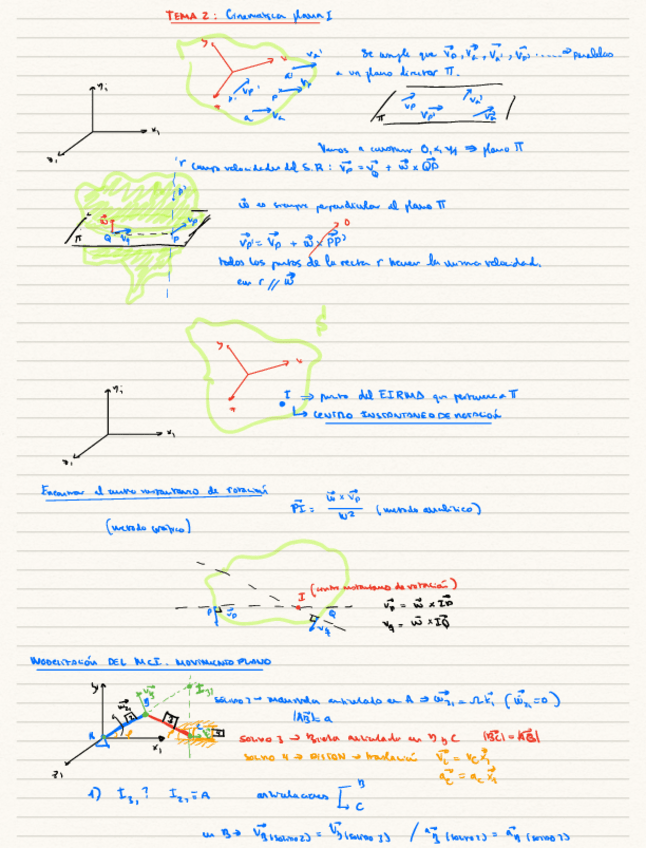 TEMA 2: Cinematica plana I
Se cumple que vP, vQ, vA', vP' ..... ⇒ paralelos
a un plano director π.
Vamos a construir O, x, y ⇒ plano π
r campo velocidades del S.R: vP = vQ + ω x QP
ω es siempre perpendicular al plano π
vP' = vP + ω x PP' 0
todos los puntos de la recta r tienen la misma velocidad.
en r // ω
I ⇒ punto del EIRMD que pertenece a π
↳ CENTRO INSTANTANEO DE ROTACIÓN
Encontrar el centro instantaneo de rotación
(metodo gráfico)
PI = ω x vP / ω² (metodo analitico)
I (centro instantaneo de rotación)
vP = ω x IP
vQ = ω x IQ
MODELIZACIÓN DEL MCI. MOVIMIENTO PLANO
solido 2 → manivela articulado en A ⇒ ω21 = Ω k1 (ω21 = 0)
|AB| = a
solido 3 → Biela articulado en B y C |BC| = |AB|
solido 4 → PISTON → traslación vC = vC x1
aC = aC x1
1) I31? I21 = A articulaciones B
C
en B → vB (solido 2) = vB (solido 3) / aB (solido 2) = aB (solido 3)